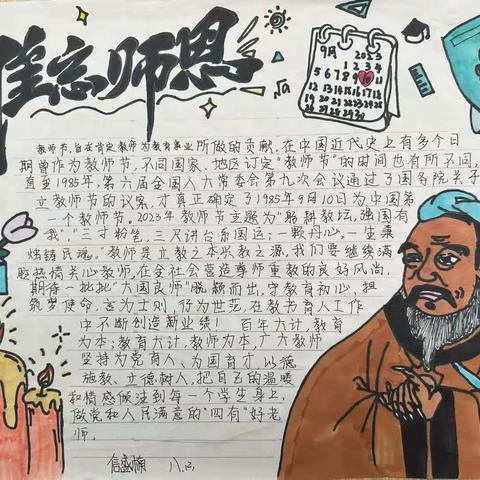 难忘师恩
9月 2023
1 2 3 4
5 6 7 8 9 10 11
12 13 14 15 16 17 18
教师节,旨在肯定教师为教育事业所做的贡献,在中国近代史上有多个日
期曾作为教师节,不同国家、地区订定"教师节"的时间也有所不同,
直至1985年,第六届全国人大常委会第九次会议通过了国务院关于
立教师节的议案,才真正确定了1985年9月10日为中国第
一个教师节。2023年教师节主题为"躬耕教坛,强国有
我","三寸粉笔,三尺讲台系国运;一颗丹心,一生秉
烛铸民魂。"教师是立教之本兴教之源,我们要继续满
腔热情关心教师,在全社会营造尊师重教的良好风尚,
期待一批批"大国良师"脱颖而出,守教育初心,担
筑梦使命,言为士则,行为世范,在教书育人工作
中不断创造新业绩! 百年大计,教育
为本;教育大计,教师为本,广大教师
坚持为党育人、为国育才,以德
施教、立德树人,把自己的温暖
和情感倾注到每一个学生身上,
做党和人民满意的"四有"好老
师。